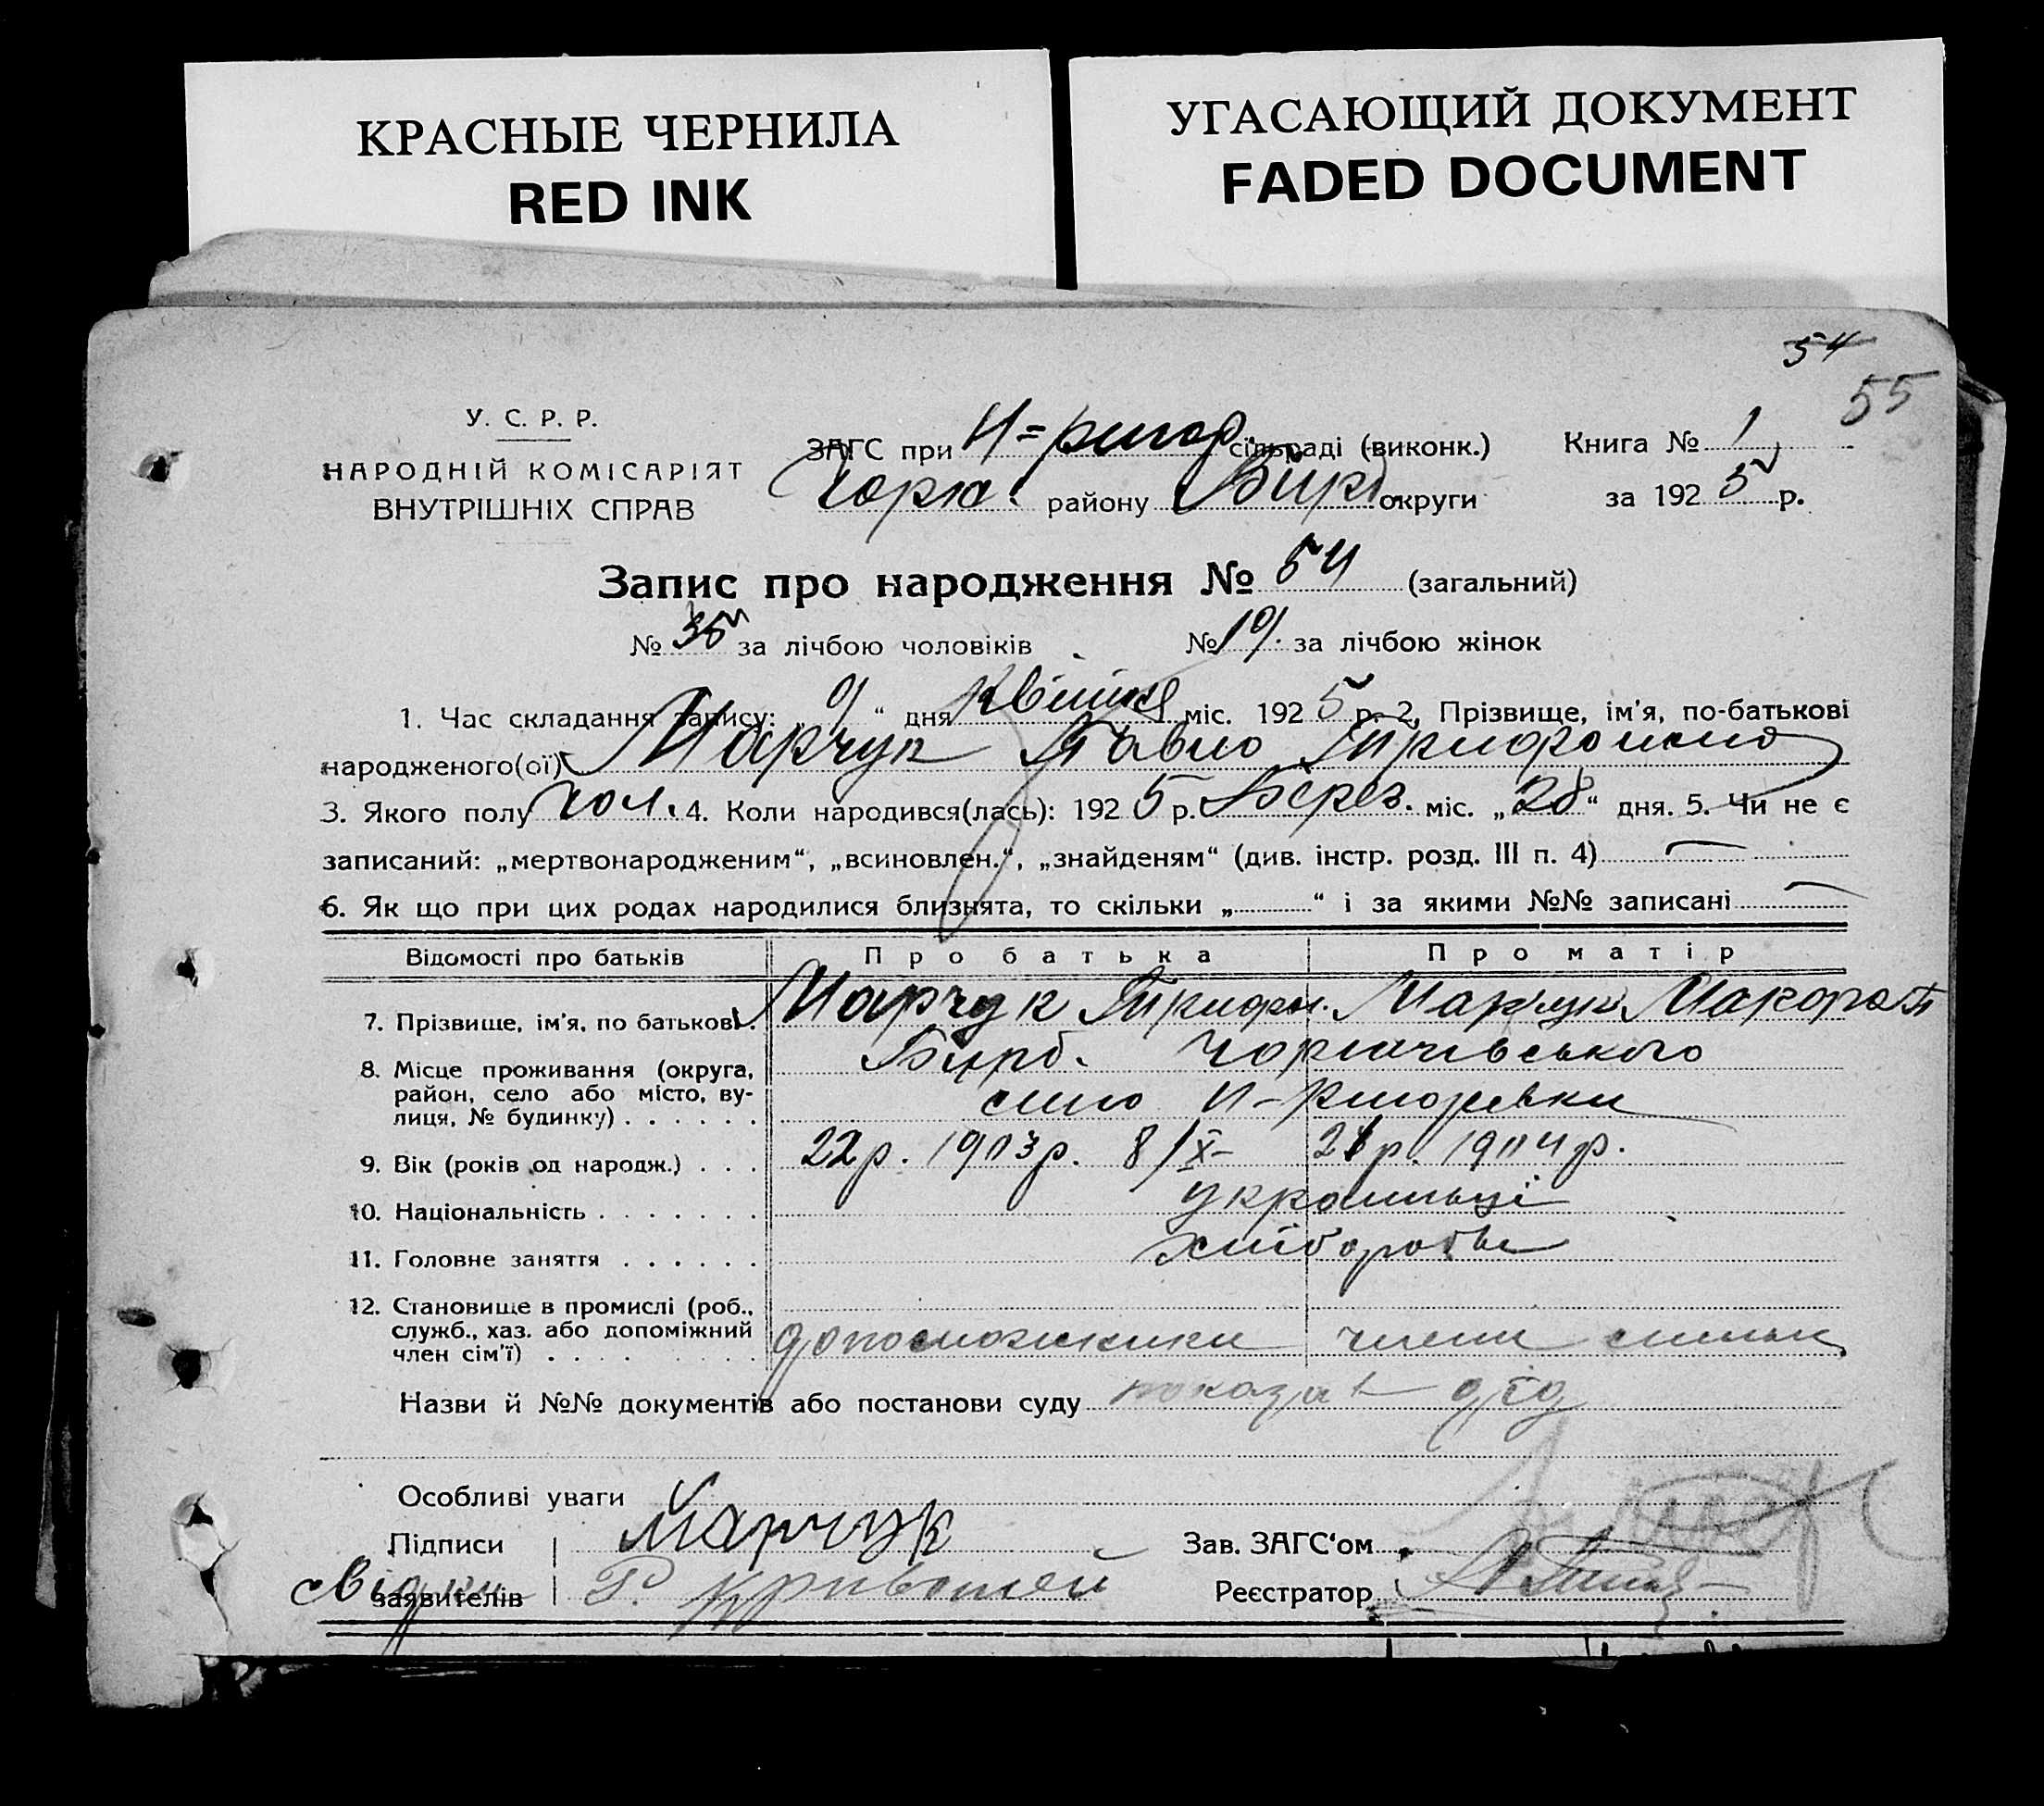 КРАСНЫЕ ЧЕРНИЛА
RED INK
УГАСАЮЩИЙ ДОКУМЕНТ
FADED DOCUMENT
54
55
У. С. Р. Р.
НАРОДНІЙ КОМІСАРІЯТ
ВНУТРІШНІХ СПРАВ
ЗАГС при сільраді (виконк.) Книга № 1
району округи за 1925 р.
Запис про народження № 54 (загальний)
№ 35 за лічбою чоловіків № 19 за лічбою жінок
1. Час складання запису: „ 9 “ дня Квітня міс. 1925 р. 2. Прізвище, ім'я, по-батькові
народженого(ої) Марчук Павло
3. Якого полу чол. 4. Коли народився(лась): 1925 р. Берез. міс. „28“ дня. 5. Чи не є
записаний: „мертвонародженим“, „всиновлен.“, „знайденям“ (див. інстр. розд. III п. 4)
6. Як що при цих родах народилися близнята, то скільки „ “ і за якими №№ записані
Відомості про батьків Про батька Про матір
7. Прізвище, ім'я, по батькові. Марчук Трифон. Марчук
8. Місце проживання (округа,
район, село або місто, ву-
лиця, № будинку) . . . . . .
село
9. Вік (років од народж.) . . . 22 р. 1903 р. 8/X– 21 р. 1904 р.
10. Національність . . . . . . . українці
11. Головне заняття . . . . . . хлібороби
12. Становище в промислі (роб.,
служб., хаз. або допоміжний
член сім'ї) . . . . . . . . члени
Назви й №№ документів або постанови суду показав дід
Особливі уваги
Підписи Марчук Зав. ЗАГС'ом
свідки заявителів Р. Кривошей Реєстратор